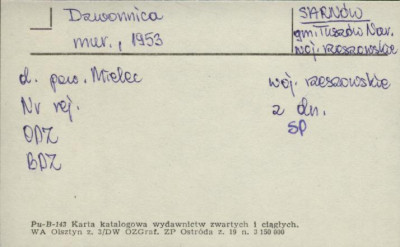 Dzwonnica
mur., 1953
SARNÓW
gm. Tuszów Nar.
woj. rzeszowskie
d. pow. Mielec
woj. rzeszowskie
Nr rej.
z dn.
ODZ
SP
BDZ
Pu-B-143 Karta katalogowa wydawnictw zwartych i ciągłych.
WA Olsztyn z. 2/DW OZGraf. ZP Ostróda z. 19 n. 3 150 000